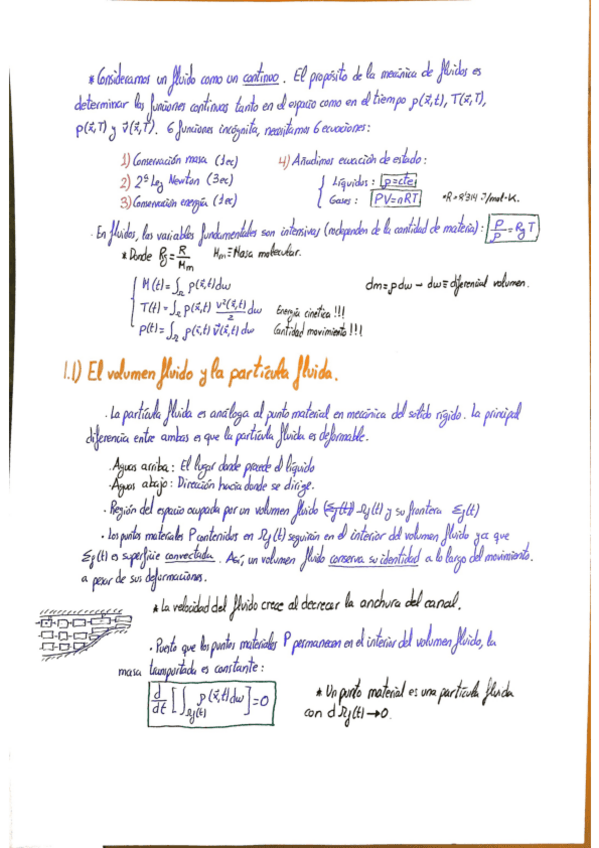 * Consideramos un fluido como un continuo. El propósito de la mecánica de fluidos es
determinar las funciones continuas tanto en el espacio como en el tiempo ρ(x⃗,t), T(x⃗,T),
p(x⃗,T) y v⃗(x⃗,T). 6 funciones incógnita, necesitamos 6 ecuaciones:
1) Conservación masa (1ec)
2) 2ª Ley Newton (3ec)
3) Conservación energía (1ec)
4) Añadimos ecuación de estado:
Líquidos: ρ=cte
Gases: PV=nRT
*R=8'314 J/mol·K.
· En fluidos, las variables fundamentales son intensivas (independen de la cantidad de materia): P/ρ = Rg T
* Donde Rg = R/Mm Mm ≡ Masa molecular.
M(t) = ∫Ω ρ(x⃗,t)dw
dm = ρdw → dw ≡ diferencial volumen.
T(t) = ∫Ω ρ(x⃗,t) v²(x⃗,t)/2 dw Energía cinética !!!
p(t) = ∫Ω ρ(x⃗,t) v⃗(x⃗,t)dw Cantidad movimiento !!!
1.1) El volumen fluido y la partícula fluida.
· La partícula fluida es análoga al punto material en mecánica del sólido rígido. La principal
diferencia entre ambas es que la partícula fluida es deformable.
· Aguas arriba: El lugar donde procede el líquido
· Aguas abajo: Dirección hacia donde se dirige.
· Región del espacio ocupada por un volumen fluido (Σf(t)) Ωf(t) y su frontera Σf(t)
· Los puntos materiales P contenidos en Ωf(t) seguirán en el interior del volumen fluido ya que
Σf(t) es superficie convectada. Así, un volumen fluido conserva su identidad a lo largo del movimiento.
a pesar de sus deformaciones.
* La velocidad del fluido crece al decrecer la anchura del canal.
· Puesto que los puntos materiales P permanecen en el interior del volumen fluido, la
masa transportada es constante:
d/dt [∫Ωf(t) ρ(x⃗,t)dw] = 0
* Un punto material es una partícula fluida
con dΩf(t) → 0.